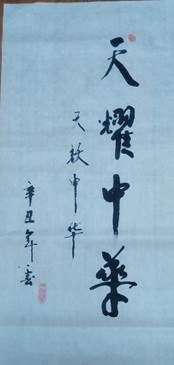 天耀中華
天赦中华
辛丑年書